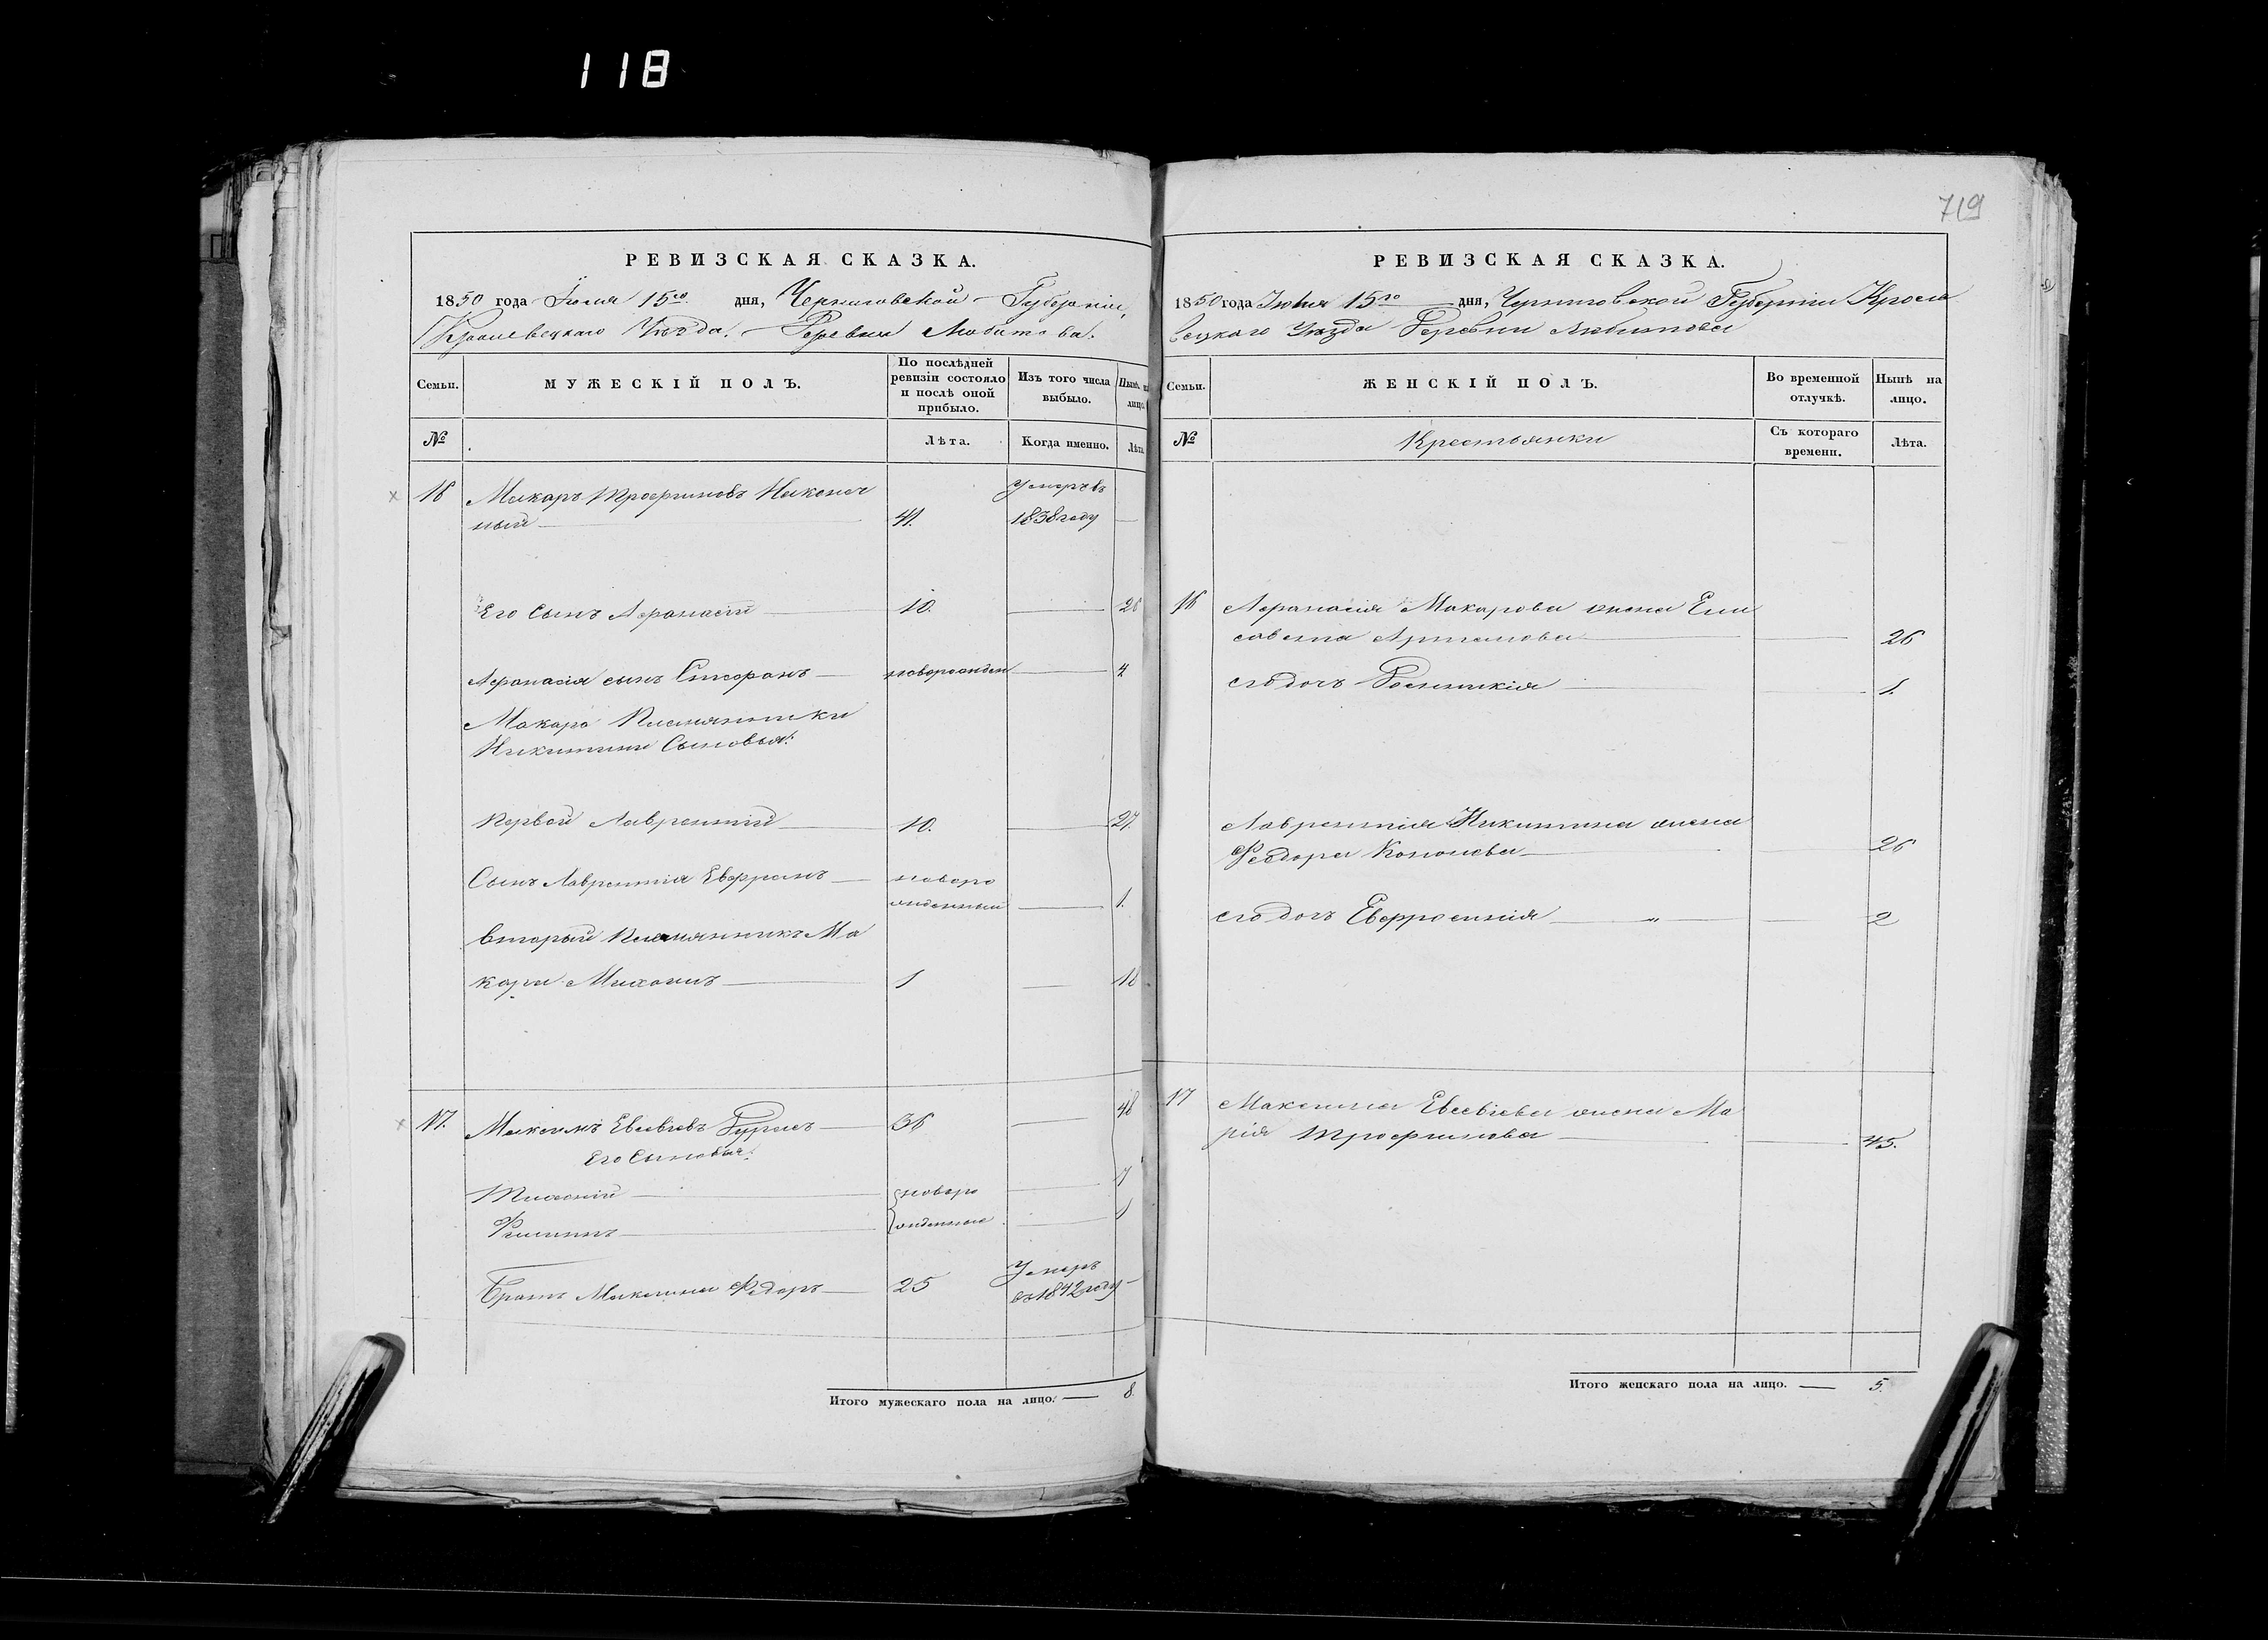 118
719
РЕВИЗСКАЯ СКАЗКА.
1850 года Іюня 15го дня, Черниговской Губерніи,
Кролевецкаго Уѣзда. Деревни Любитова.
Семьи.
МУЖЕСКІЙ ПОЛЪ.
По послѣдней ревизіи состояло и послѣ оной прибыло.
Изъ того числа выбыло.
Нынѣ на лицо.
№
Лѣта.
Когда именно.
Лѣта.
16 Макаръ Трофимовъ
ный 41. Умеръ въ 1838 году
Его Сынъ Афанасій 10. 26
Афанасія сынъ Стефанъ новорожден 4
Макара Племянники
Никитини Сыновья:
Первой Лаврентій 10. 27.
Сынъ Лаврентія новоро
жденный 1.
Вторый Племянникъ Ма
кара Михаилъ 1 18
17. Максимъ Евсѣевъ 36 48
Его Сыновья:
Тимофій новоро 7
Филиппъ жденные 1
Братъ Максима Федоръ 25 Умеръ
въ 1842 году
Итого мужескаго пола на лицо. 8.
РЕВИЗСКАЯ СКАЗКА.
1850 года Іюня 15го дня, Черниговской Губерніи Кроле
вецкаго Уѣзда Деревни Любитова
Семьи.
ЖЕНСКІЙ ПОЛЪ.
Во временной отлучкѣ.
Нынѣ на лицо.
№
Крестьянки
Съ котораго времени.
Лѣта.
16 Афанасія Макарова жена Ели
савета Артемова 26
его дочь 1.
Лаврентія Никитина жена
Феодора Кононова 26
его дочь Евфросинія 2
17 Максима Евсѣева жена Ма
рія Трофимова 45.
Итого женскаго пола на лицо. 5.